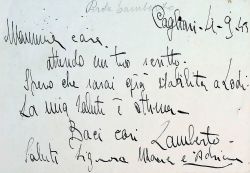 Cagliari - 4-9-43
Mamma cara.
attendo un tuo scritto.
Spero che sarai già stabilita a Lodi.
La mia salute è ottima.
Baci cari Lamberto.
Saluti Signora Maria e Adriana